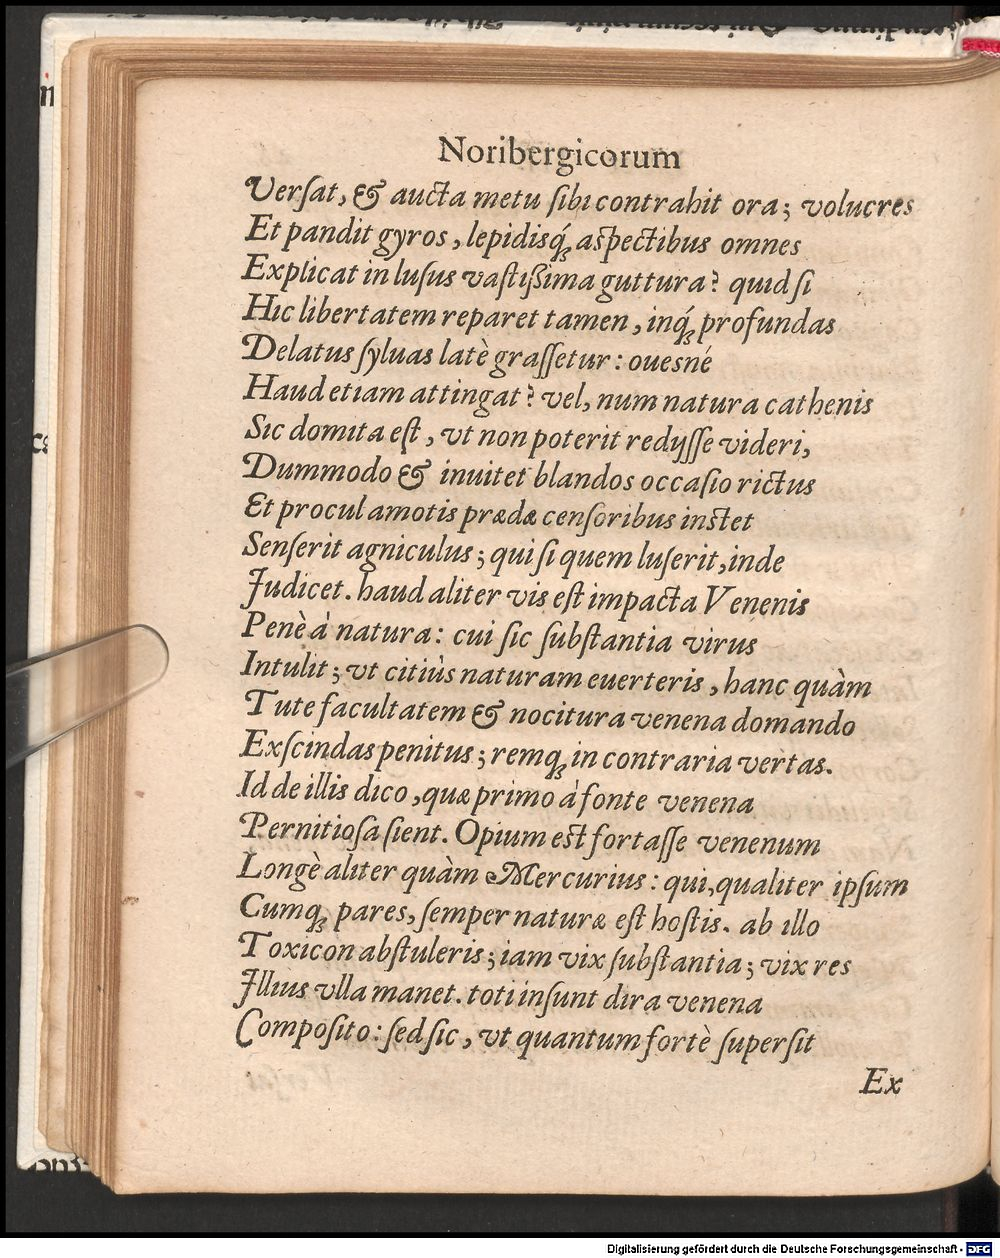 Noribergicorum
Verſat, & aucta metu ſibi contrahit ora; volucres
Et pandit gyros, lepidisq́; aſpectibus omnes
Explicat in luſus vaſtiſsima guttura? quid ſi
Hic libertatem reparet tamen, inq́; profundas
Delatus ſyluas latè graſſetur: ouesné
Haud etiam attingat? vel, num natura cathenis
Sic domita eſt, vt non poterit redijſſe videri,
Dummodo & inuitet blandos occaſio rictus
Et procul amotis prædæ cenſoribus inſtet
Senſerit agniculus; qui ſi quem luſerit, inde
Judicet. haud aliter vis eſt impacta Venenis
Penè á natura: cui ſic ſubſtantia virus
Intulit; vt citiùs naturam euerteris, hanc quàm
Tute facultatem & nocitura venena domando
Exſcindas penitus; remq; in contraria vertas.
Id de illis dico, quæ primo à fonte venena
Pernitioſa ſient. Opium eſt fortaſſe venenum
Longè aliter quàm Mercurius: qui, qualiter ipſum
Cumq; pares, ſemper naturæ eſt hoſtis. ab illo
Toxicon abſtuleris; iam vix ſubſtantia; vix res
Illius vlla manet. toti inſunt dira venena
Compoſito: ſed ſic, vt quantum fortè ſuperſit
Ex
Digitalisierung gefördert durch die Deutsche Forschungsgemeinschaft - DFG